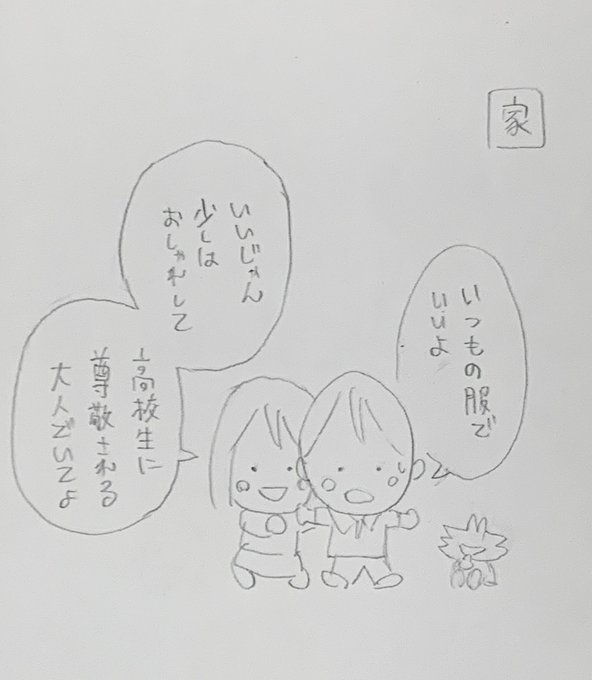 家
いつもの服で
いいよ
いいじゃん
少しは
おしゃれして
高校生に
尊敬される
大人でいてよ